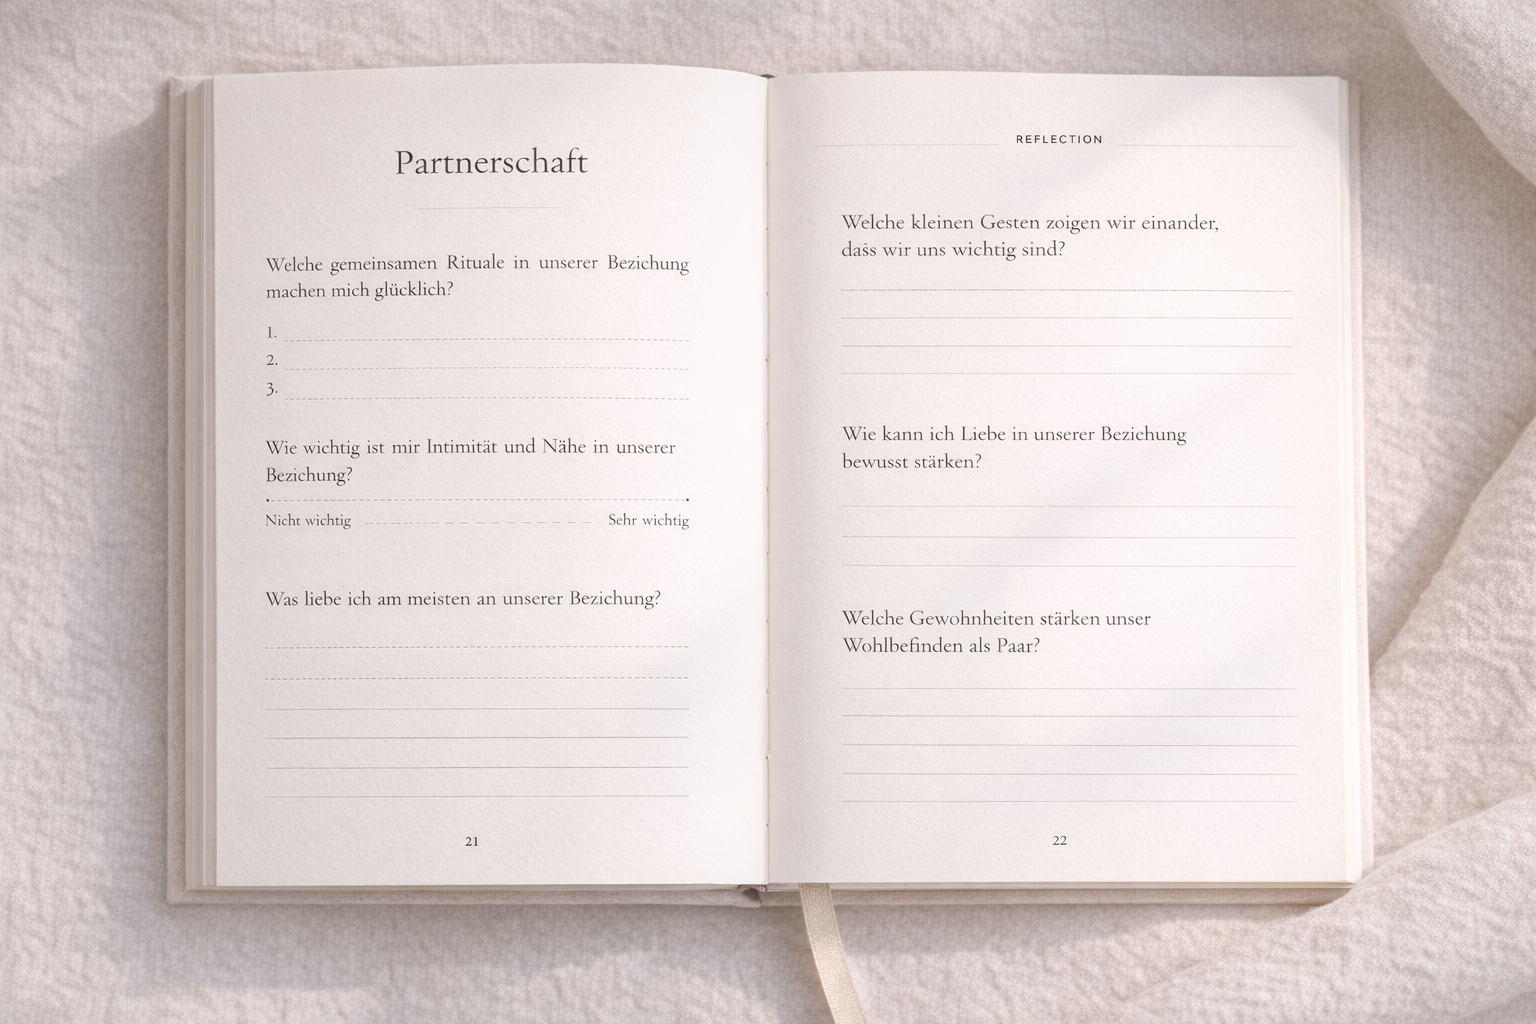 Partnerschaft
Welche gemeinsamen Rituale in unserer Bezichung
machen mich glücklich?
1.
2.
3.
Wie wichtig ist mir Intimität und Nähe in unserer
Bezichung?
Nicht wichtig
Sehr wichtig
Was liebe ich am meisten an unserer Bezichung?
21
REFLECTION
Welche kleinen Gesten zoigen wir einander,
dass wir uns wichtig sind?
Wie kann ich Liebe in unserer Bezichung
bewusst stärken?
Welche Gewohnheiten stärken unser
Wohlbefinden als Paar?
22